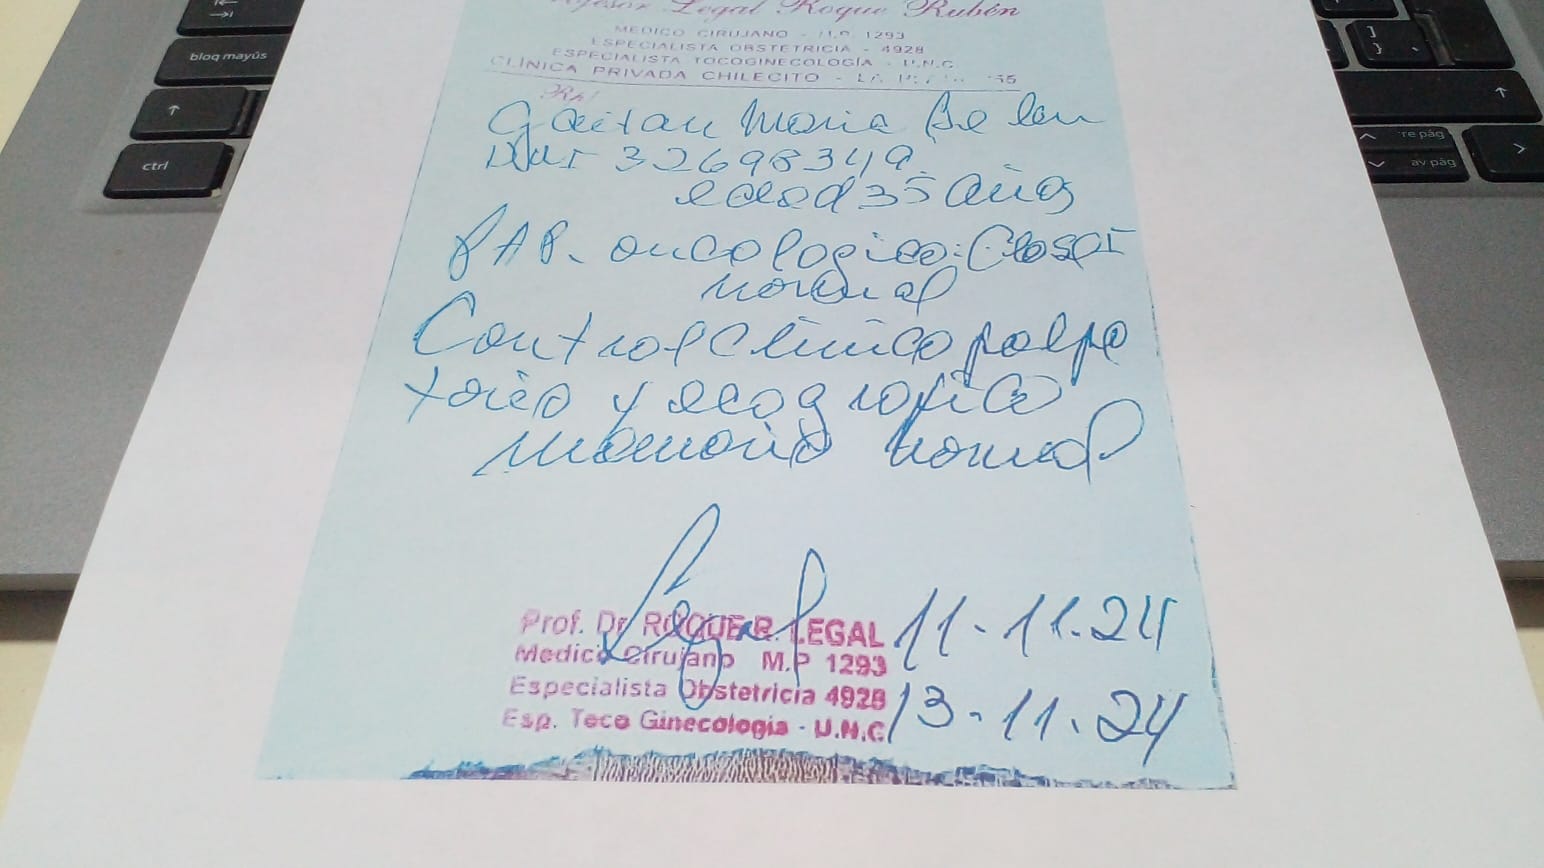 Profesor Legal Roque Rubén
MEDICO CIRUJANO - M.P. 1293
ESPECIALISTA OBSTETRICIA - 4928
ESPECIALISTA TOCOGINECOLOGÍA - U.N.C.
CLÍNICA PRIVADA CHILECITO -
Rp/
Gaitan Maria Belen
DNI 32698349
edad 35 años
PAP. oncologico: Clase I
normal
Control clinico palpa
torio y ecografico
mamario normal
Prof. Dr. ROQUE R. LEGAL 11-11.24
Medico Cirujano M.P 1293
Especialista Obstetricia 4928 13-11.24
Esp. Toco Ginecologia - U.N.C.
bloq mayús
ctrl
re pág
av pág